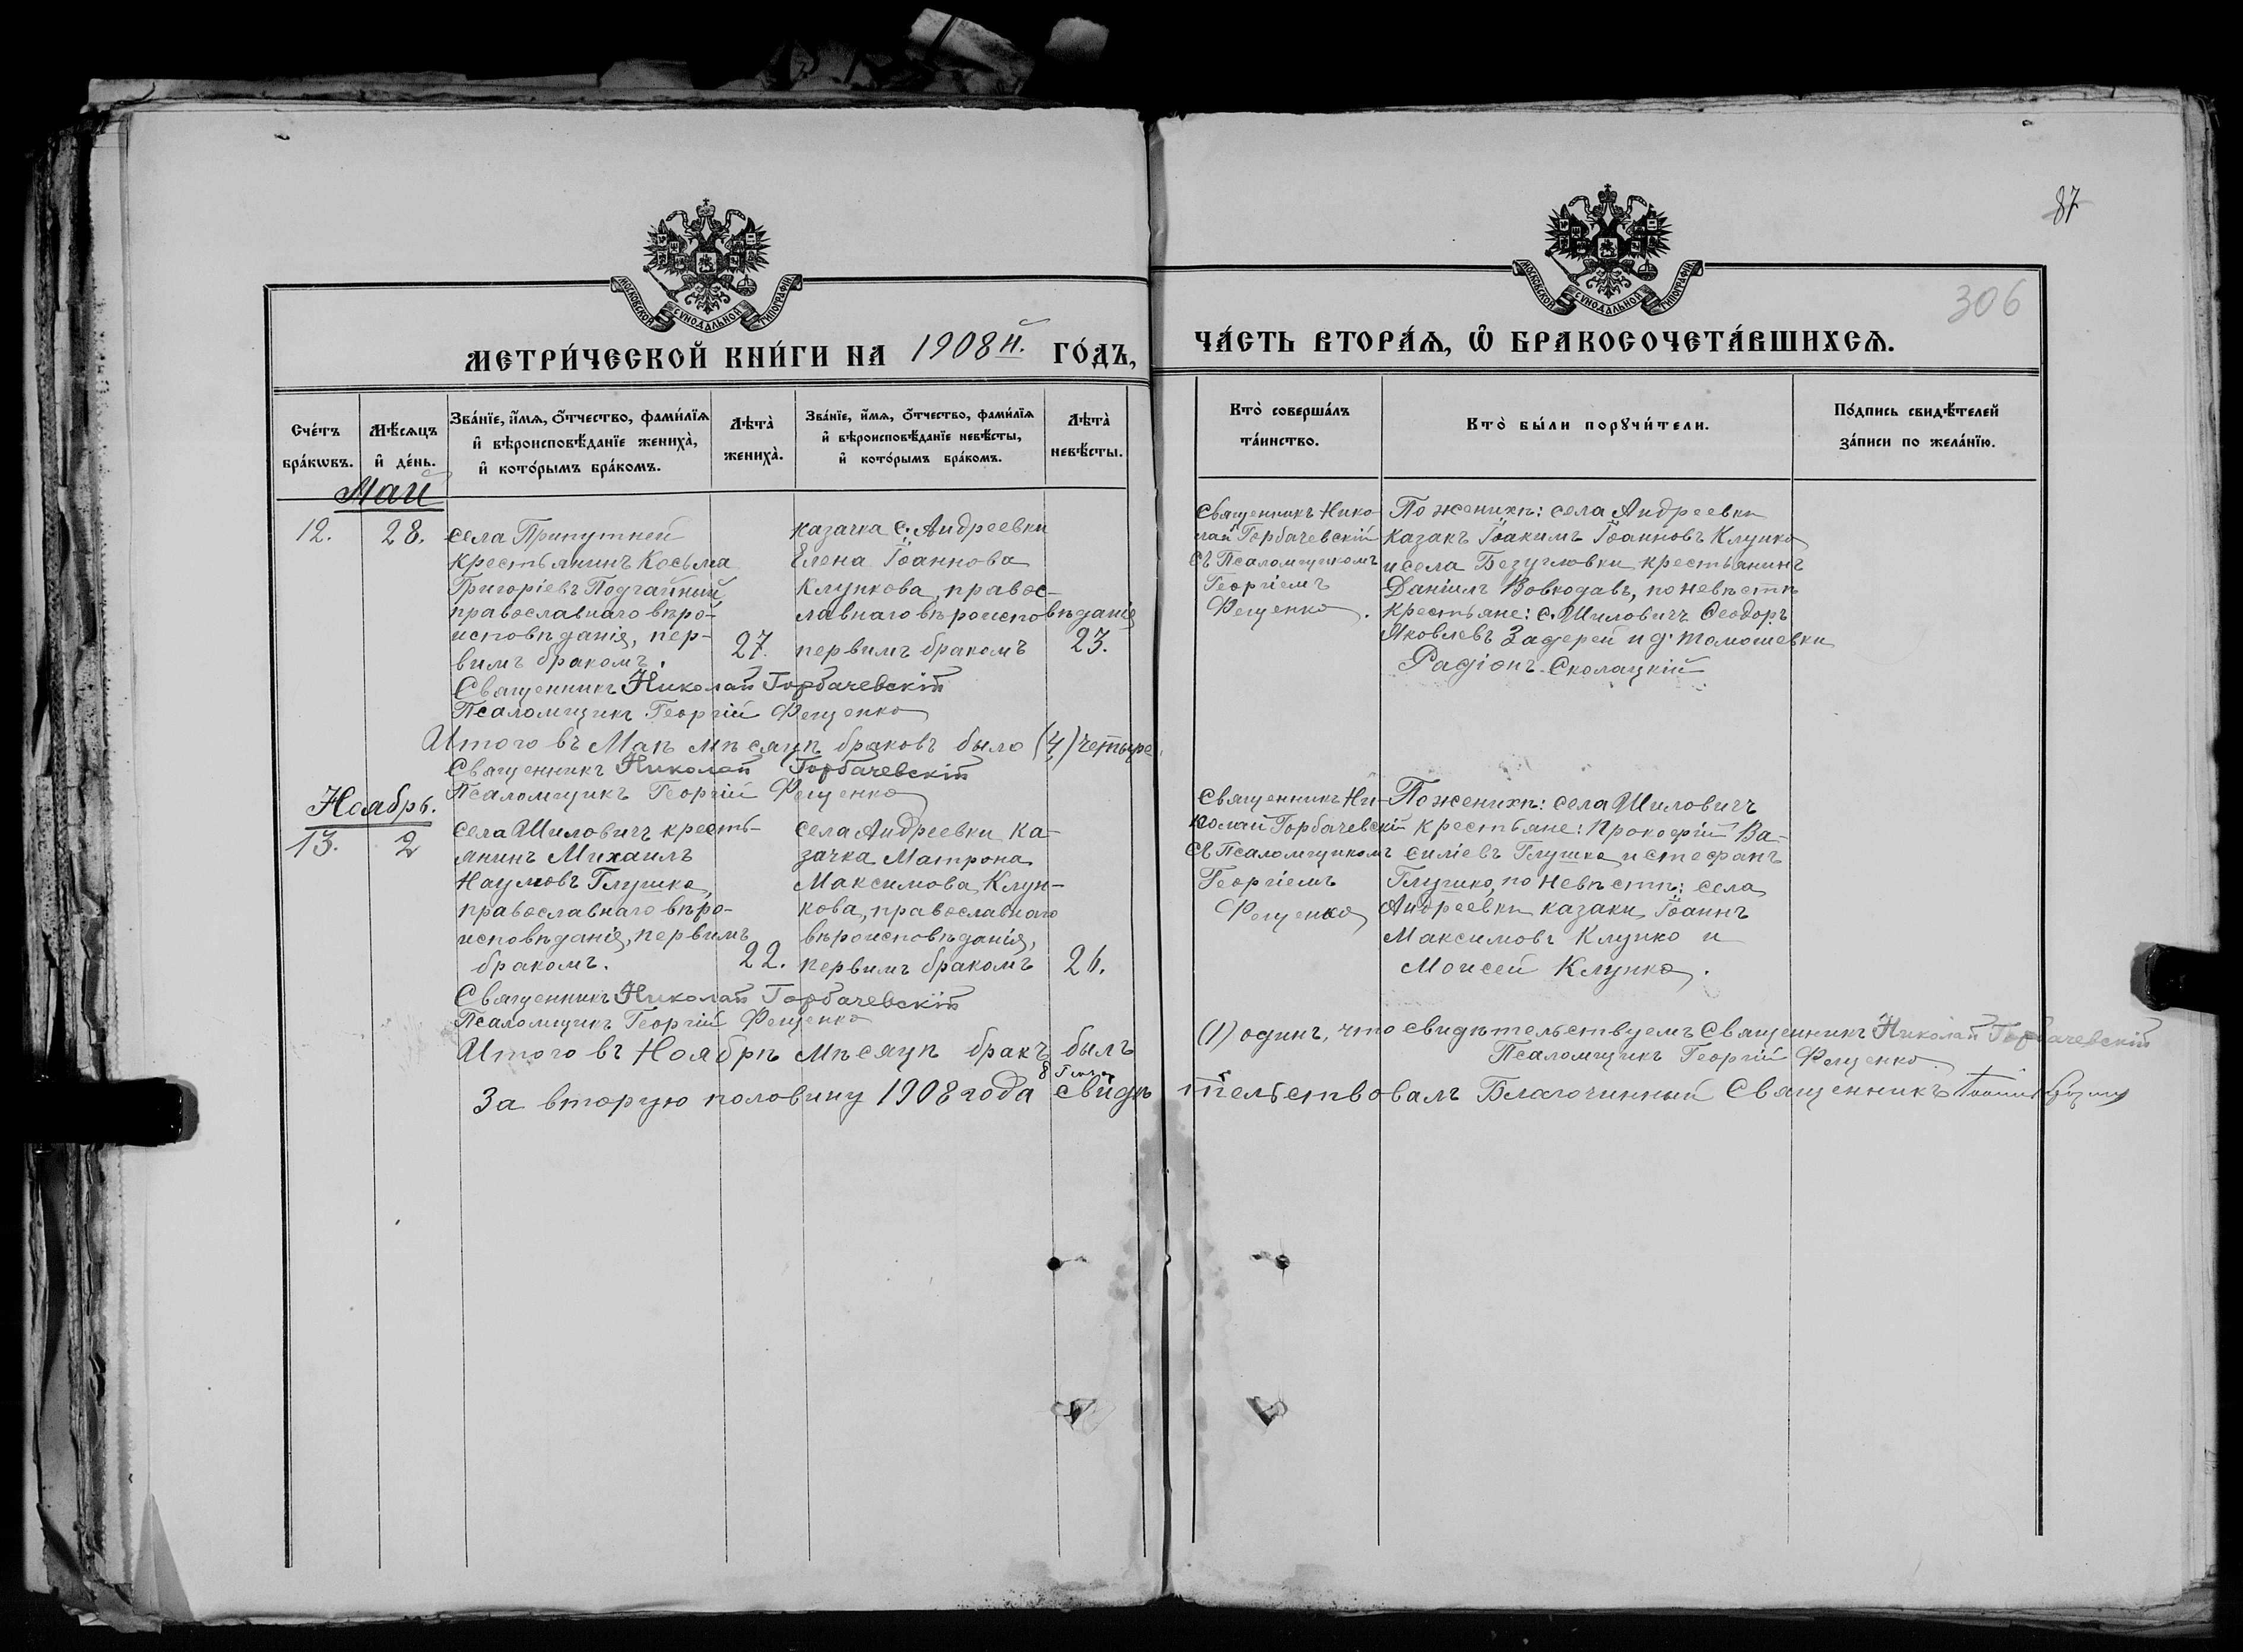 87
306
МОСКОВСКОЙ СѴНОДАЛЬНОЙ ТИПОГРАФІИ
МОСКОВСКОЙ СѴНОДАЛЬНОЙ ТИПОГРАФІИ
МЕТРИ́ЧЕСКОЙ КНИ́ГИ НА 1908й. ГО́ДЪ,
ЧА́СТЬ ВТОРА́Ѧ, Ѡ҆ БРАКОСОЧЕТА́ВШИХСѦ.
Сче́тъ бра́кѡвъ.
Мѣ́сѧцъ и҆ де́нь.
Зва́нїе, и҆́мѧ, ѻ҆́тчество, фами́лїѧ
и҆ вѣроисповѣ́данїе жениха̀,
и҆ кото́рымъ бра́комъ.
Лѣта̀ жениха̀.
Зва́нїе, и҆́мѧ, ѻ҆́тчество, фами́лїѧ
и҆ вѣроисповѣ́данїе невѣ́сты,
и҆ кото́рымъ бра́комъ.
Лѣта̀ невѣ́сты.
Кто̀ соверша́лъ
та́инство.
Кто̀ бы́ли порꙋчи́тели.
По́дпись свидѣ́телей
за́писи по жела́нїю.
Май
12.
28.
села Припутней
крестьянинъ Косьма
Григоріевъ Подчайный
православнаго вѣро-
исповѣданія, пер-
вимъ бракомъ.
27.
казачка с. Андреевки
Елена Іоаннова
Клункова, правос-
лавнаго вѣроисповѣданія
первимъ бракомъ
23.
Священникъ Нико-
лай Горбачевскій
съ Псаломщикомъ
Георгіемъ
Фещенко.
По женихѣ: села Андреевки
казакъ Іоакимъ Іоанновъ Клунко
и села Безугловки крестьянинъ
Даніилъ Вовкодавъ, по невѣстѣ
крестьяне: с. Шиловичъ Ѳеодоръ
Яковлевъ Задерей и д. Томашевки
Радіонъ Сколацкій
Священникъ Николай Горбачевскій
Псаломщикъ Георгій Фещенко
Итого въ Маѣ мѣсяцѣ браковъ было (4) четыре.
Священникъ Николай Горбачевскій
Псаломщикъ Георгій Фещенко
Ноябрь.
13.
2
села Шиловичъ кресть-
янинъ Михаилъ
Наумовъ Глушко,
православнаго вѣро-
исповѣданія, первимъ
бракомъ.
22.
села Андреевки ка-
зачка Матрона
Максимова Клун-
кова, православнаго
вѣроисповѣданія,
первимъ бракомъ
26.
Священникъ Ни-
колай Горбачевскій
съ Псаломщикомъ
Георгіемъ
Фещенко
По женихѣ: села Шиловичъ
крестьяне: Прокофій Ва-
силіевъ Глушко и Стефанъ
Глушко, по невѣстѣ: села
Андреевки казаки Іоаннъ
Максимовъ Клунко и
Моисей Клунко.
Священникъ Николай Горбачевскій
Псаломщикъ Георгій Фещенко
Итого въ Ноябрѣ мѣсяцѣ бракъ былъ (1) одинъ, что свидѣтельствуемъ Священникъ Николай Горбачевскій
Псаломщикъ Георгій Фещенко.
За вторую половину 1908 года свидѣтельствовалъ Благочинный Священникъ Іоаннъ